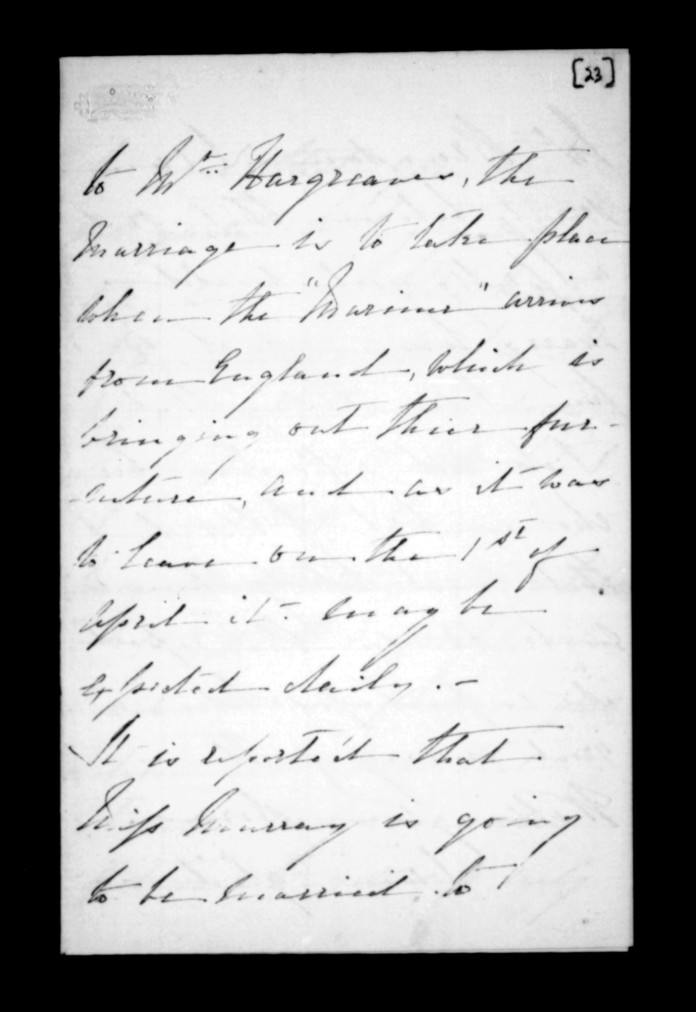 [23]
to Mr. Hargreaves, the
marriage is to take place
when the "Mariner" arrives
from England, which is
bringing out thier fur-
niture, and as it was
to leave on the 1st of
April it may be
expected daily. —
It is reported that
Miss Murray is going
to be married to